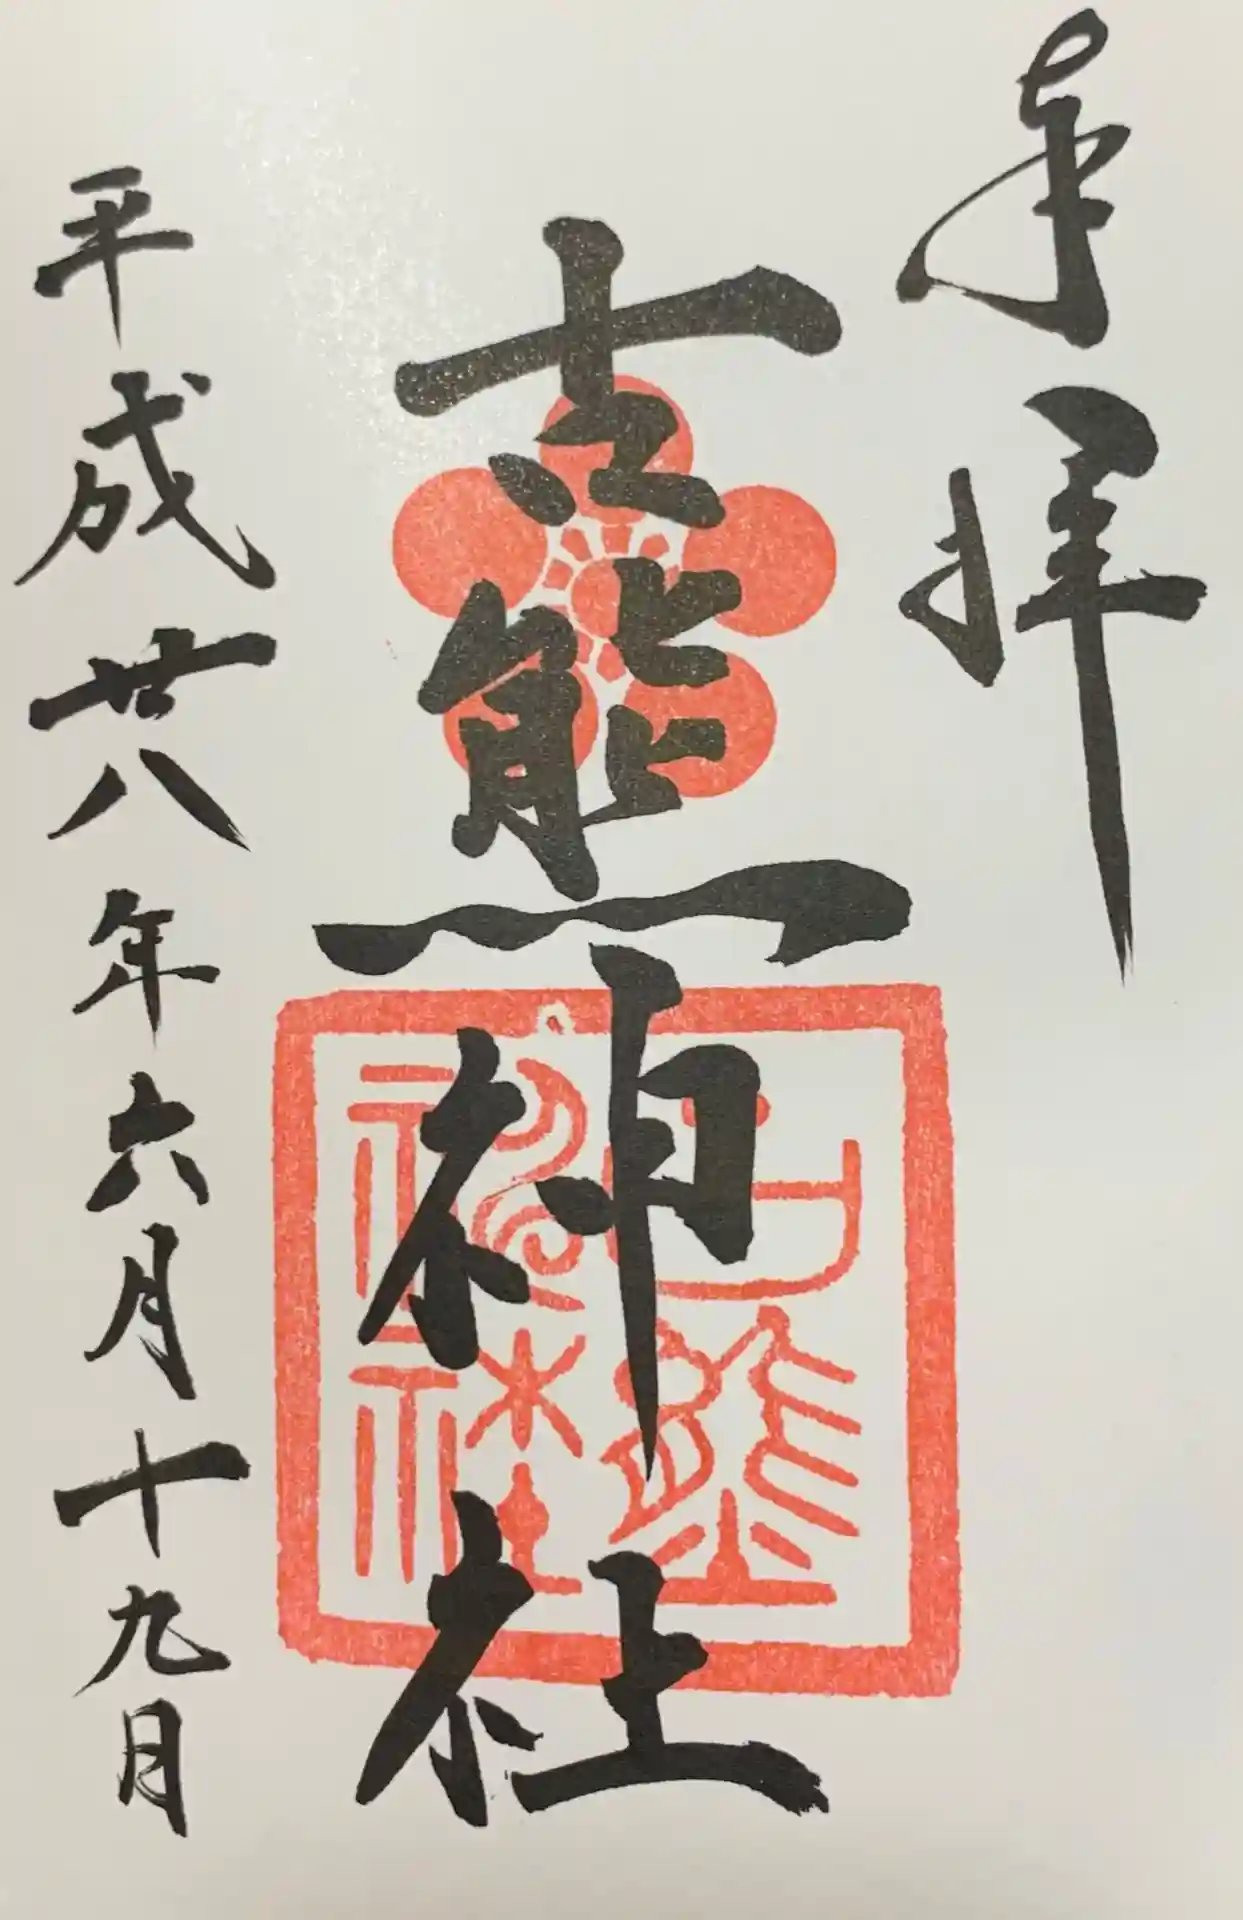 奉拝
古熊神社
古熊
神社
平成廿八年六月十九日